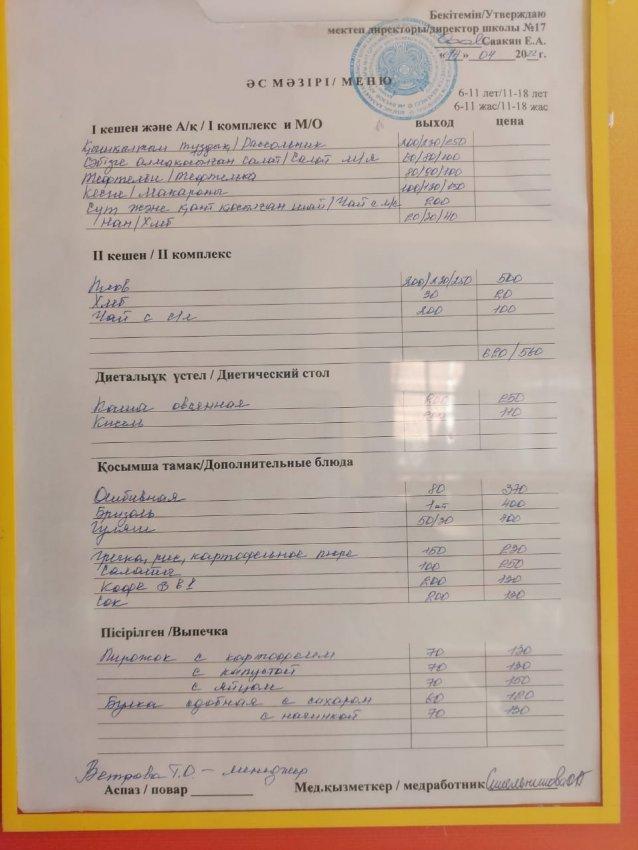 Бекітемін/Утверждаю
мектеп директоры/директор школы №17
Саакян Е.А.
«14» 04 2022 г.
ӘС МӘЗІРІ/ МЕНЮ
6-11 лет/11-18 лет
6-11 жас/11-18 жас
І кешен және А/қ / І комплекс и М/О выход цена
/Рассольник 200/230/250
Салат 60/80/100
/Тефтелька 80/90/100
Кеспе/Макароны 100/130/150
Сүт және қант қосылған шай/Чай с м/с 200
Нан/Хлеб 20/30/40
ІІ кешен / ІІ комплекс
Плов 200/230/250 500
Хлеб 30 20
Чай с 200 100
620/560
Диеталық үстел / Диетический стол
Каша овсянная 200 250
Кисель 200 110
Қосымша тамақ/Дополнительные блюда
Отбивная 80 370
Бризоль 1шт 400
Гуляш 50/30
Гречка, рис, картофельное пюре 150 230
Салаты 100 250
Кофе 3 в 1 200 130
Сок 200 130
Пісірілген /Выпечка
Пирожок с картофелем 70 130
с капустой 70 130
с яйцом 70 150
Булка сдобная с сахаром 60 120
с начинкой 70 130
Ветрова Т.О. – менеджер
Аспаз / повар Мед.қызметкер / медработник